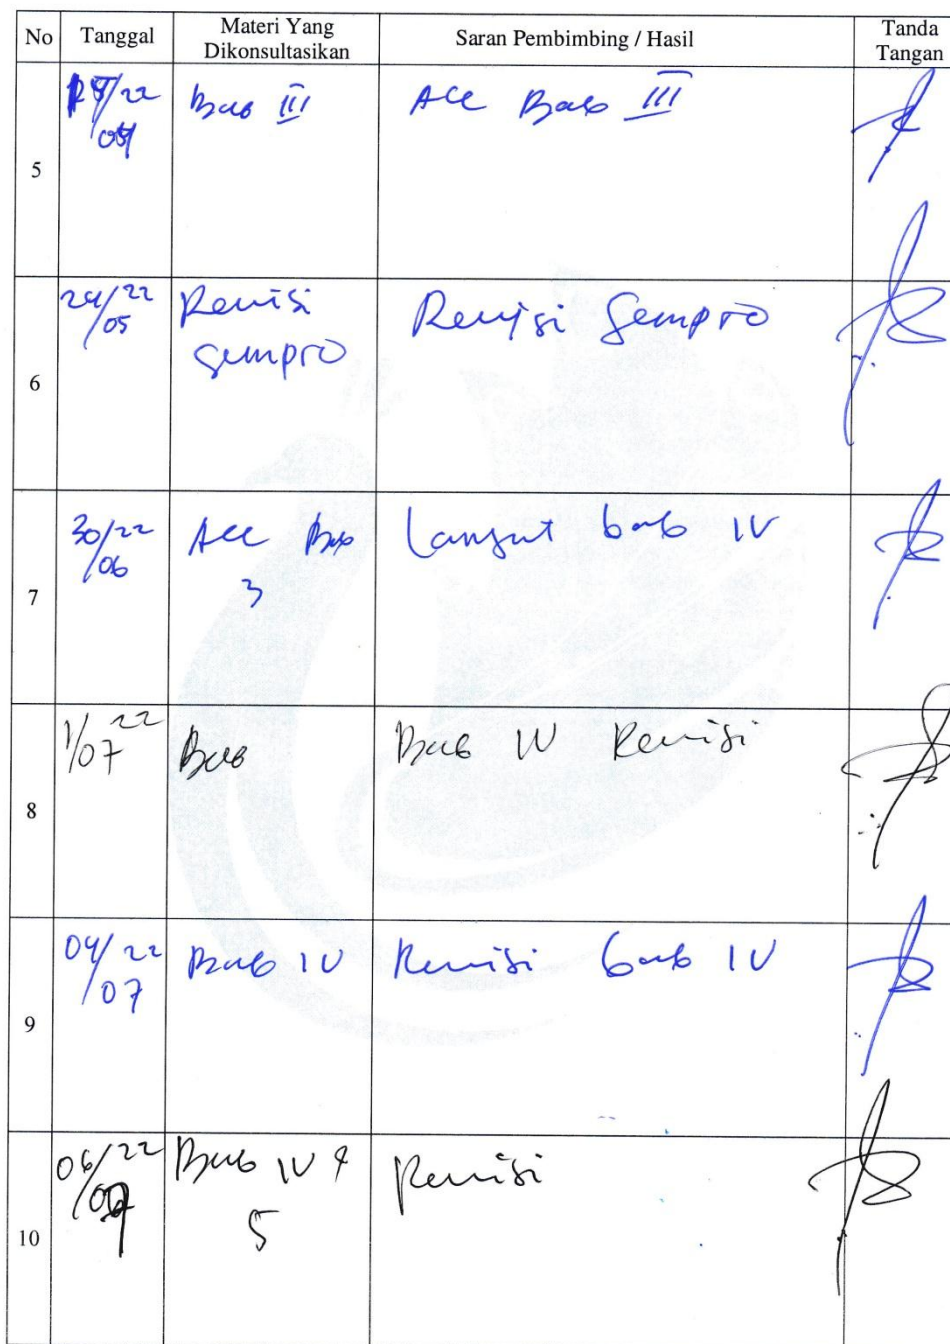 No Tanggal Materi Yang Dikonsultasikan Saran Pembimbing / Hasil Tanda Tangan
5 /22 Bab III ACC Bab III
6 24/22 /05 Revisi Sempro Revisi Sempro
7 30/22 /06 ACC Bab 3 Lanjut bab IV
8 1/07 22 Bab Bab IV Revisi
9 04/22 /07 Bab IV Revisi bab IV
10 06/22 /07 Bab IV & 5 Revisi